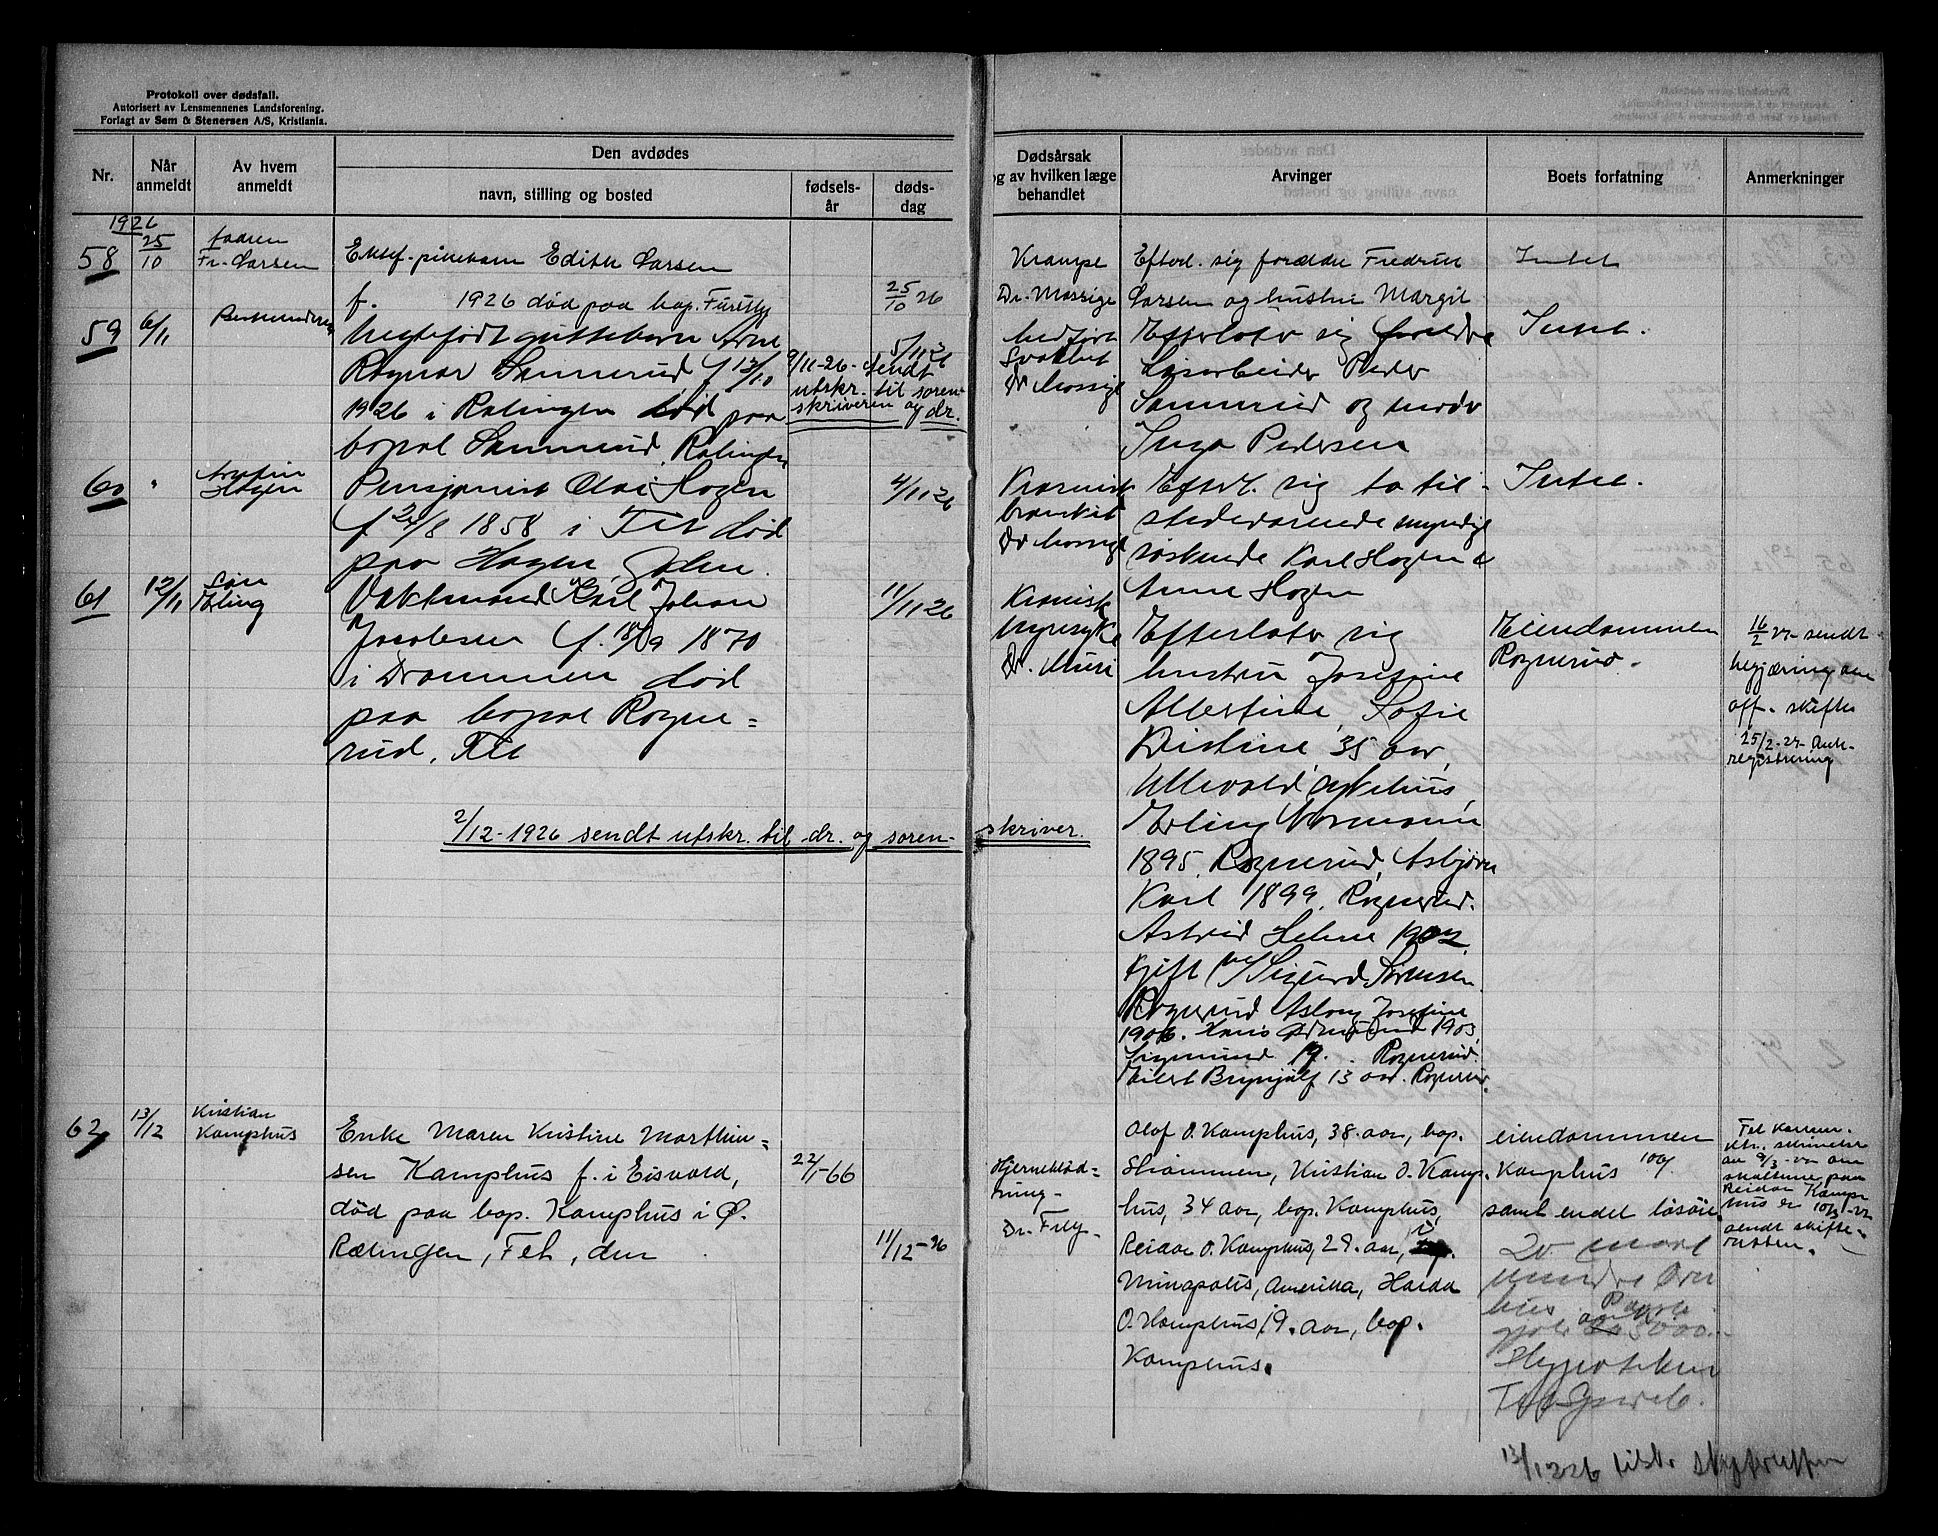 Protokoll over dødsfall.
Autorisert av Lensmennenes Landsforening.
Forlagt av Sem & Stenersen A/S, Kristiania.
Nr.
Når anmeldt
Av hvem anmeldt
Den avdødes
navn, stilling og bosted
fødsels-år
døds-dag
Dødsårsak
og av hvilken læge
behandlet
Arvinger
Boets forfatning
Anmerkninger
1926
58
25/10
faaren
Fr. Larsen
Ektef. pikebarn Edith Larsen
f. 1926 død paa bop.
25/10 26
Krampe
Dr. Mossige
Efterl. sig forældre Fredrik
Larsen og hustru Margit
Intet
59
6/11
uegtefødt guttebarn Arne
Ragnar Sannerud f 13/10
1926 i Rælingen død paa
bopæl Sannerud, Rælingen
9/11-26 - sendt
utskr. til soren-
skriveren og dr.
5/11 26
medfødt
svakhet
Dr Mossige
Efterlater sig foreldre
Løsarbeider Peder
Sannerud og moder
Inga Pedersen
Intet.
60
"
Hagen
Pensjonist Olai Hagen
f 24/8 1858 i Fet død
paa Hagen,
4/11 26
Kronisk
bronkit
Dr Mossige
Efterl. sig to til-
stedeværende myndige
søskende Karl Hagen &
Anne Hagen
Intet.
61
12/11
Søn
Erling
Vaktmand Karl Johan
Jacobsen f. 18/9 1870
i Drammen død
paa bopæl Rogne=
rud, Fet
11/11 26
Kronisk
nyresyke
Dr.
Efterlater sig
hustru Josefine
Albertine, Sofie
Kristine, 35 aar,
Ullevold sykehus,
Erling Normann
1895, Rognerud, Asbjørn
Karl 1899, Rognerud.
Astrid Helene 1902
gift m/ Sigurd Sørensen
Rognerud Aslaug Josefine
1906. Hans 1903
Sigmund 19 . Rognerud.
Eilert Brynjulf 13 aar. Rognerud.
Eiendommen
Rognerud.
16/2 27 sendt
begjæring om
off. skifte
25/2-27-
registrering
2/12-1926 sendt utskr. til dr. og soren-
skriver.
62
13/12
Kristian
Kamphus
Enke Maren Kristine Marthin=
sen Kamphus f. i Eisvold,
død paa bop. Kamphus i Ø.
Rælingen, Fet, den
22/-66
11/12-26
Hjerneblød-
ning-
Dr.
Olaf O. Kamphus, 38 aar, bop.
Strømmen, Kristian O. Kamp-
hus, 34 aar, bop. Kamphus,
Reidar O. Kamphus, 29. aar, i
Minapolis, Amerika, Harda
O. Kamphus, 19. aar, bop.
Kamphus.
eiendommen
Kamphus
samt endel løsøre.
20 maal
mindre
5000.-
Hypoteken
Fet
Fet
skrivelse
av 9/3-27 om
paa
Reidar Kamp-
hus er 10/3-27
sendt skifte-
retten.
13/12 26 skifteretten